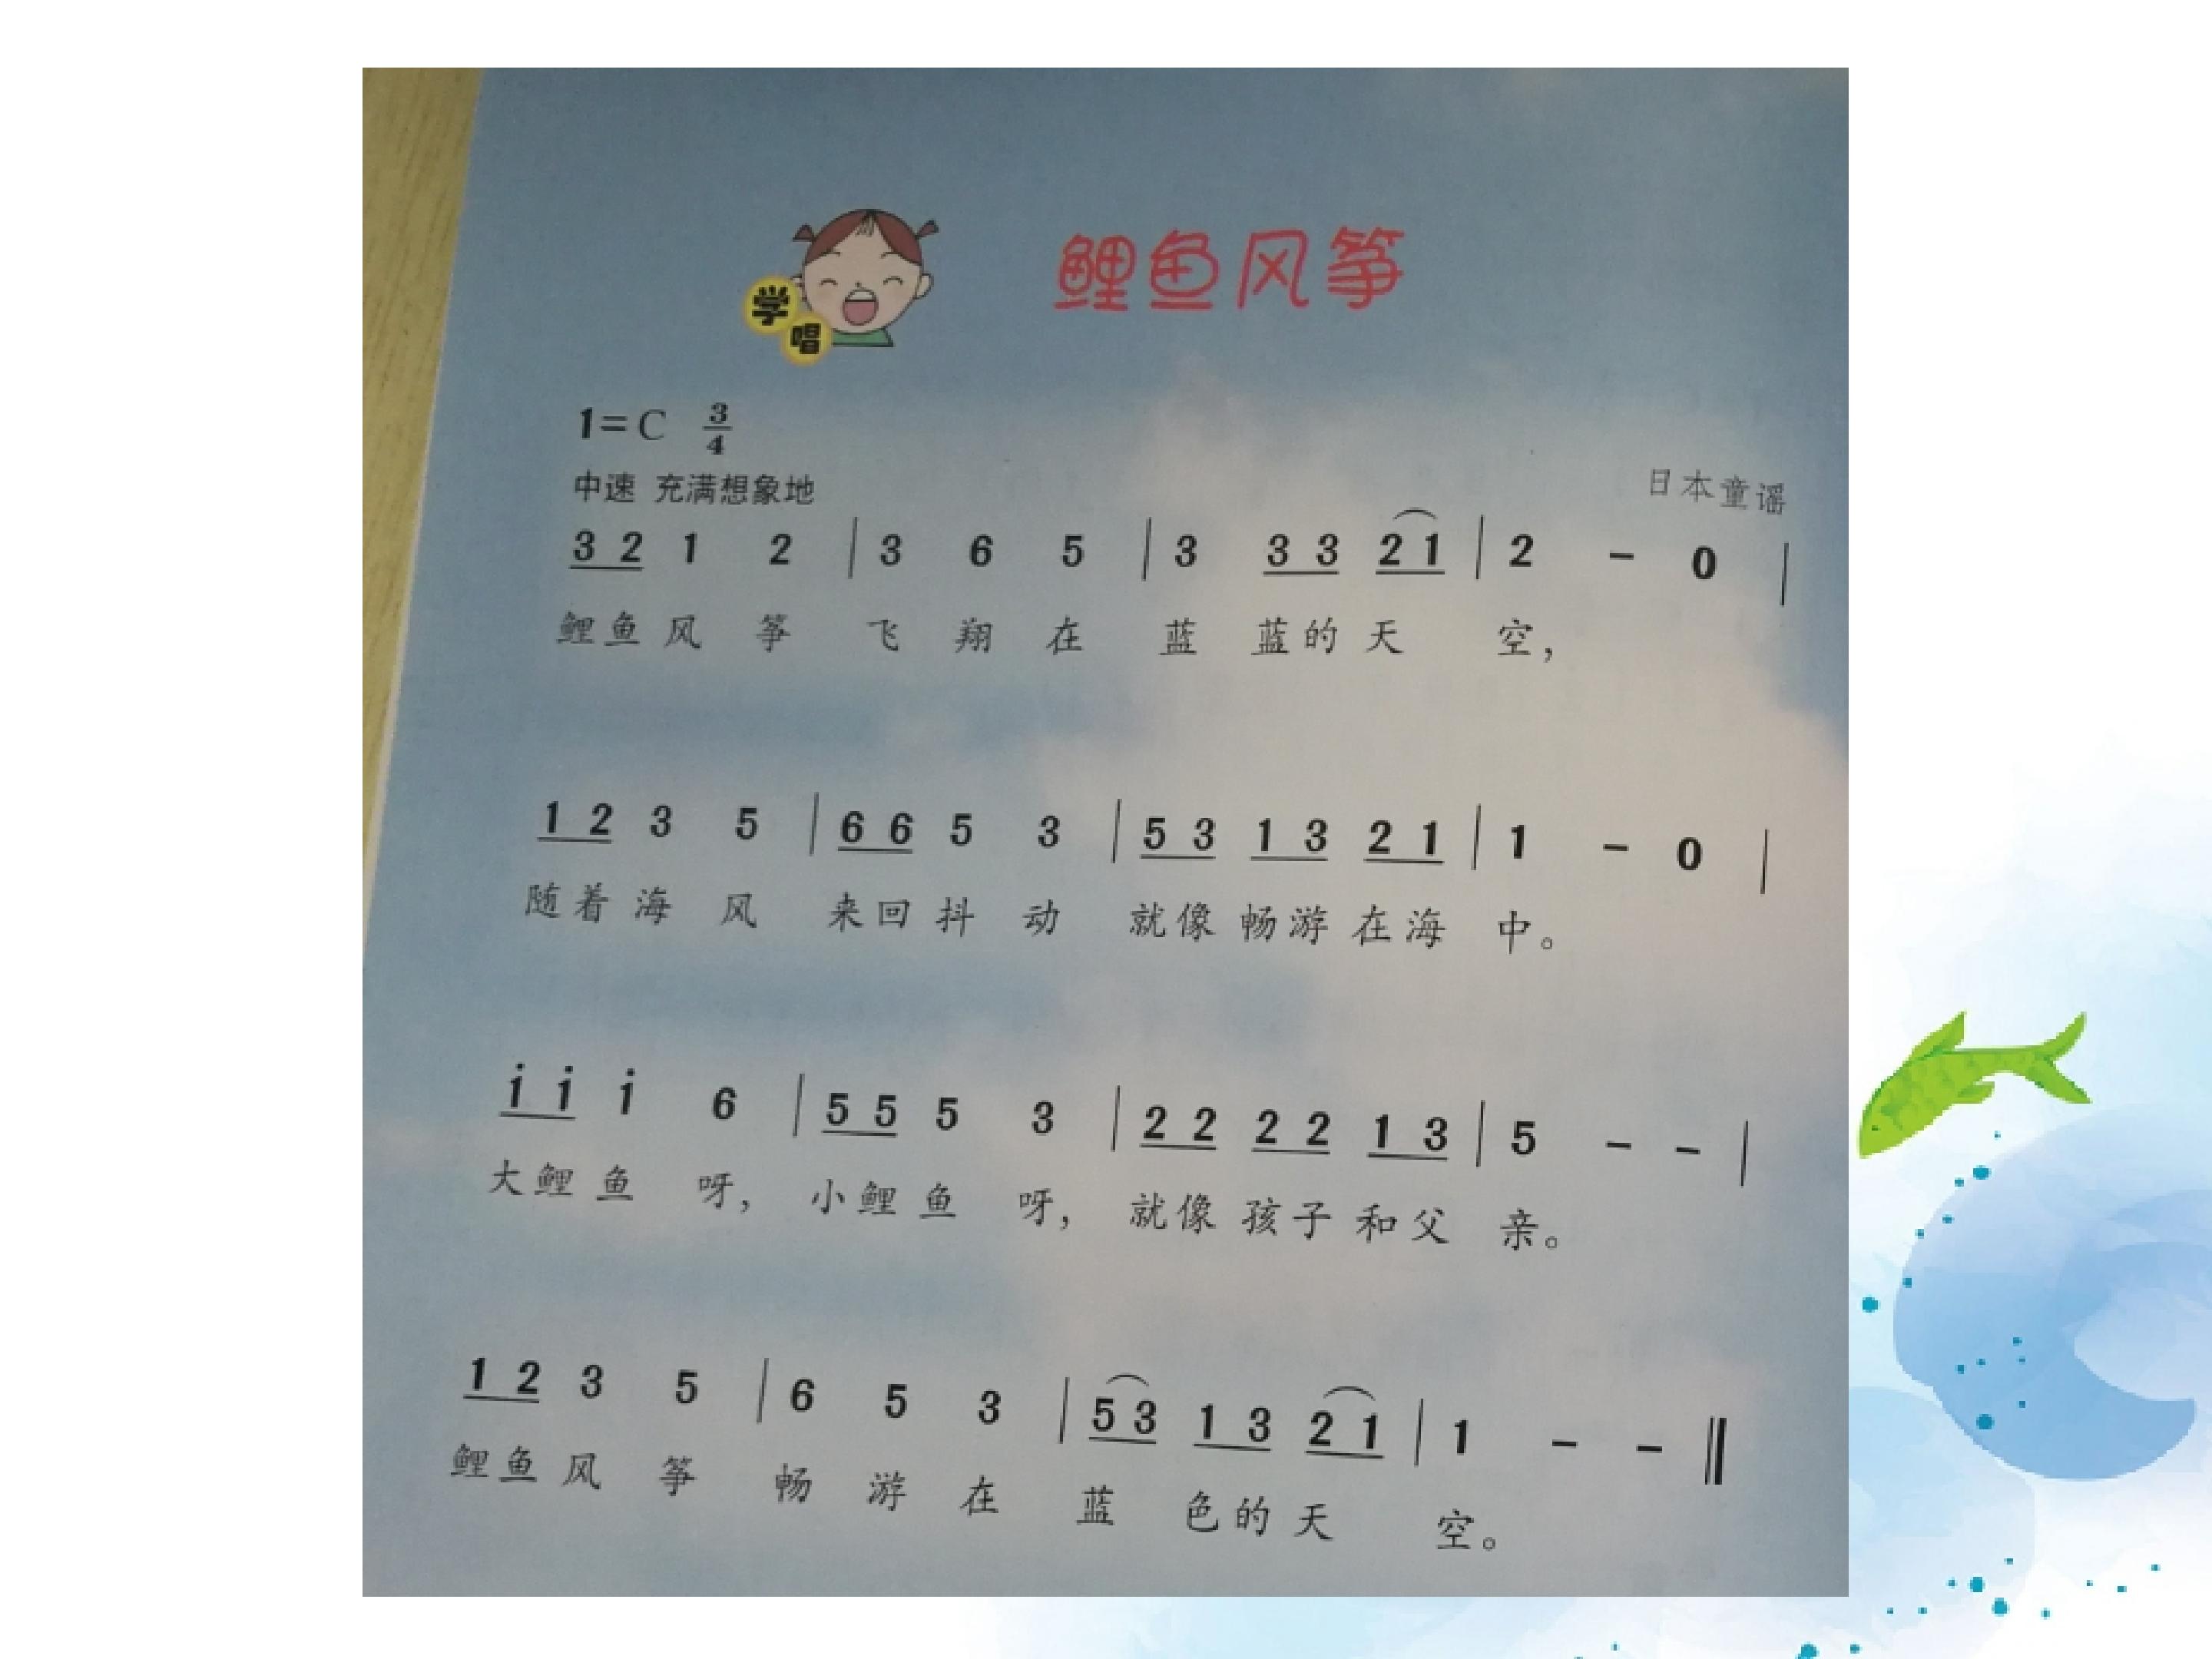 学唱
鲤鱼风筝
1=C 3/4
中速 充满想象地
日本童谣
3 2 1 2 | 3 6 5 | 3 3 3 2 1 | 2 - 0 |
鲤鱼风 筝 飞 翔 在 蓝 蓝的 天 空，
1 2 3 5 | 6 6 5 3 | 5 3 1 3 2 1 | 1 - 0 |
随着海 风 来回抖 动 就像 畅游 在海 中。
i i i 6 | 5 5 5 3 | 2 2 2 2 1 3 | 5 - - |
大鲤鱼 呀， 小鲤鱼 呀， 就像 孩子 和父 亲。
1 2 3 5 | 6 5 3 | 5 3 1 3 2 1 | 1 - - ‖
鲤鱼风 筝 畅 游 在 蓝 色的 天 空。